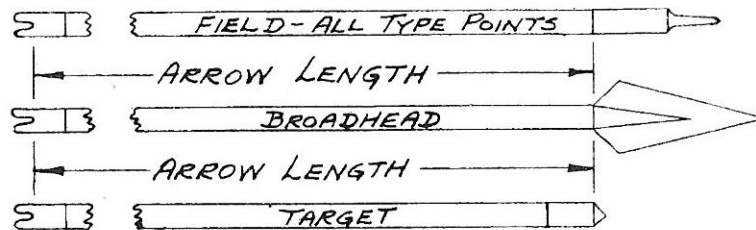 FIELD-ALL TYPE POINTS
ARROW LENGTH
BROADHEAD
ARROW LENGTH
TARGET